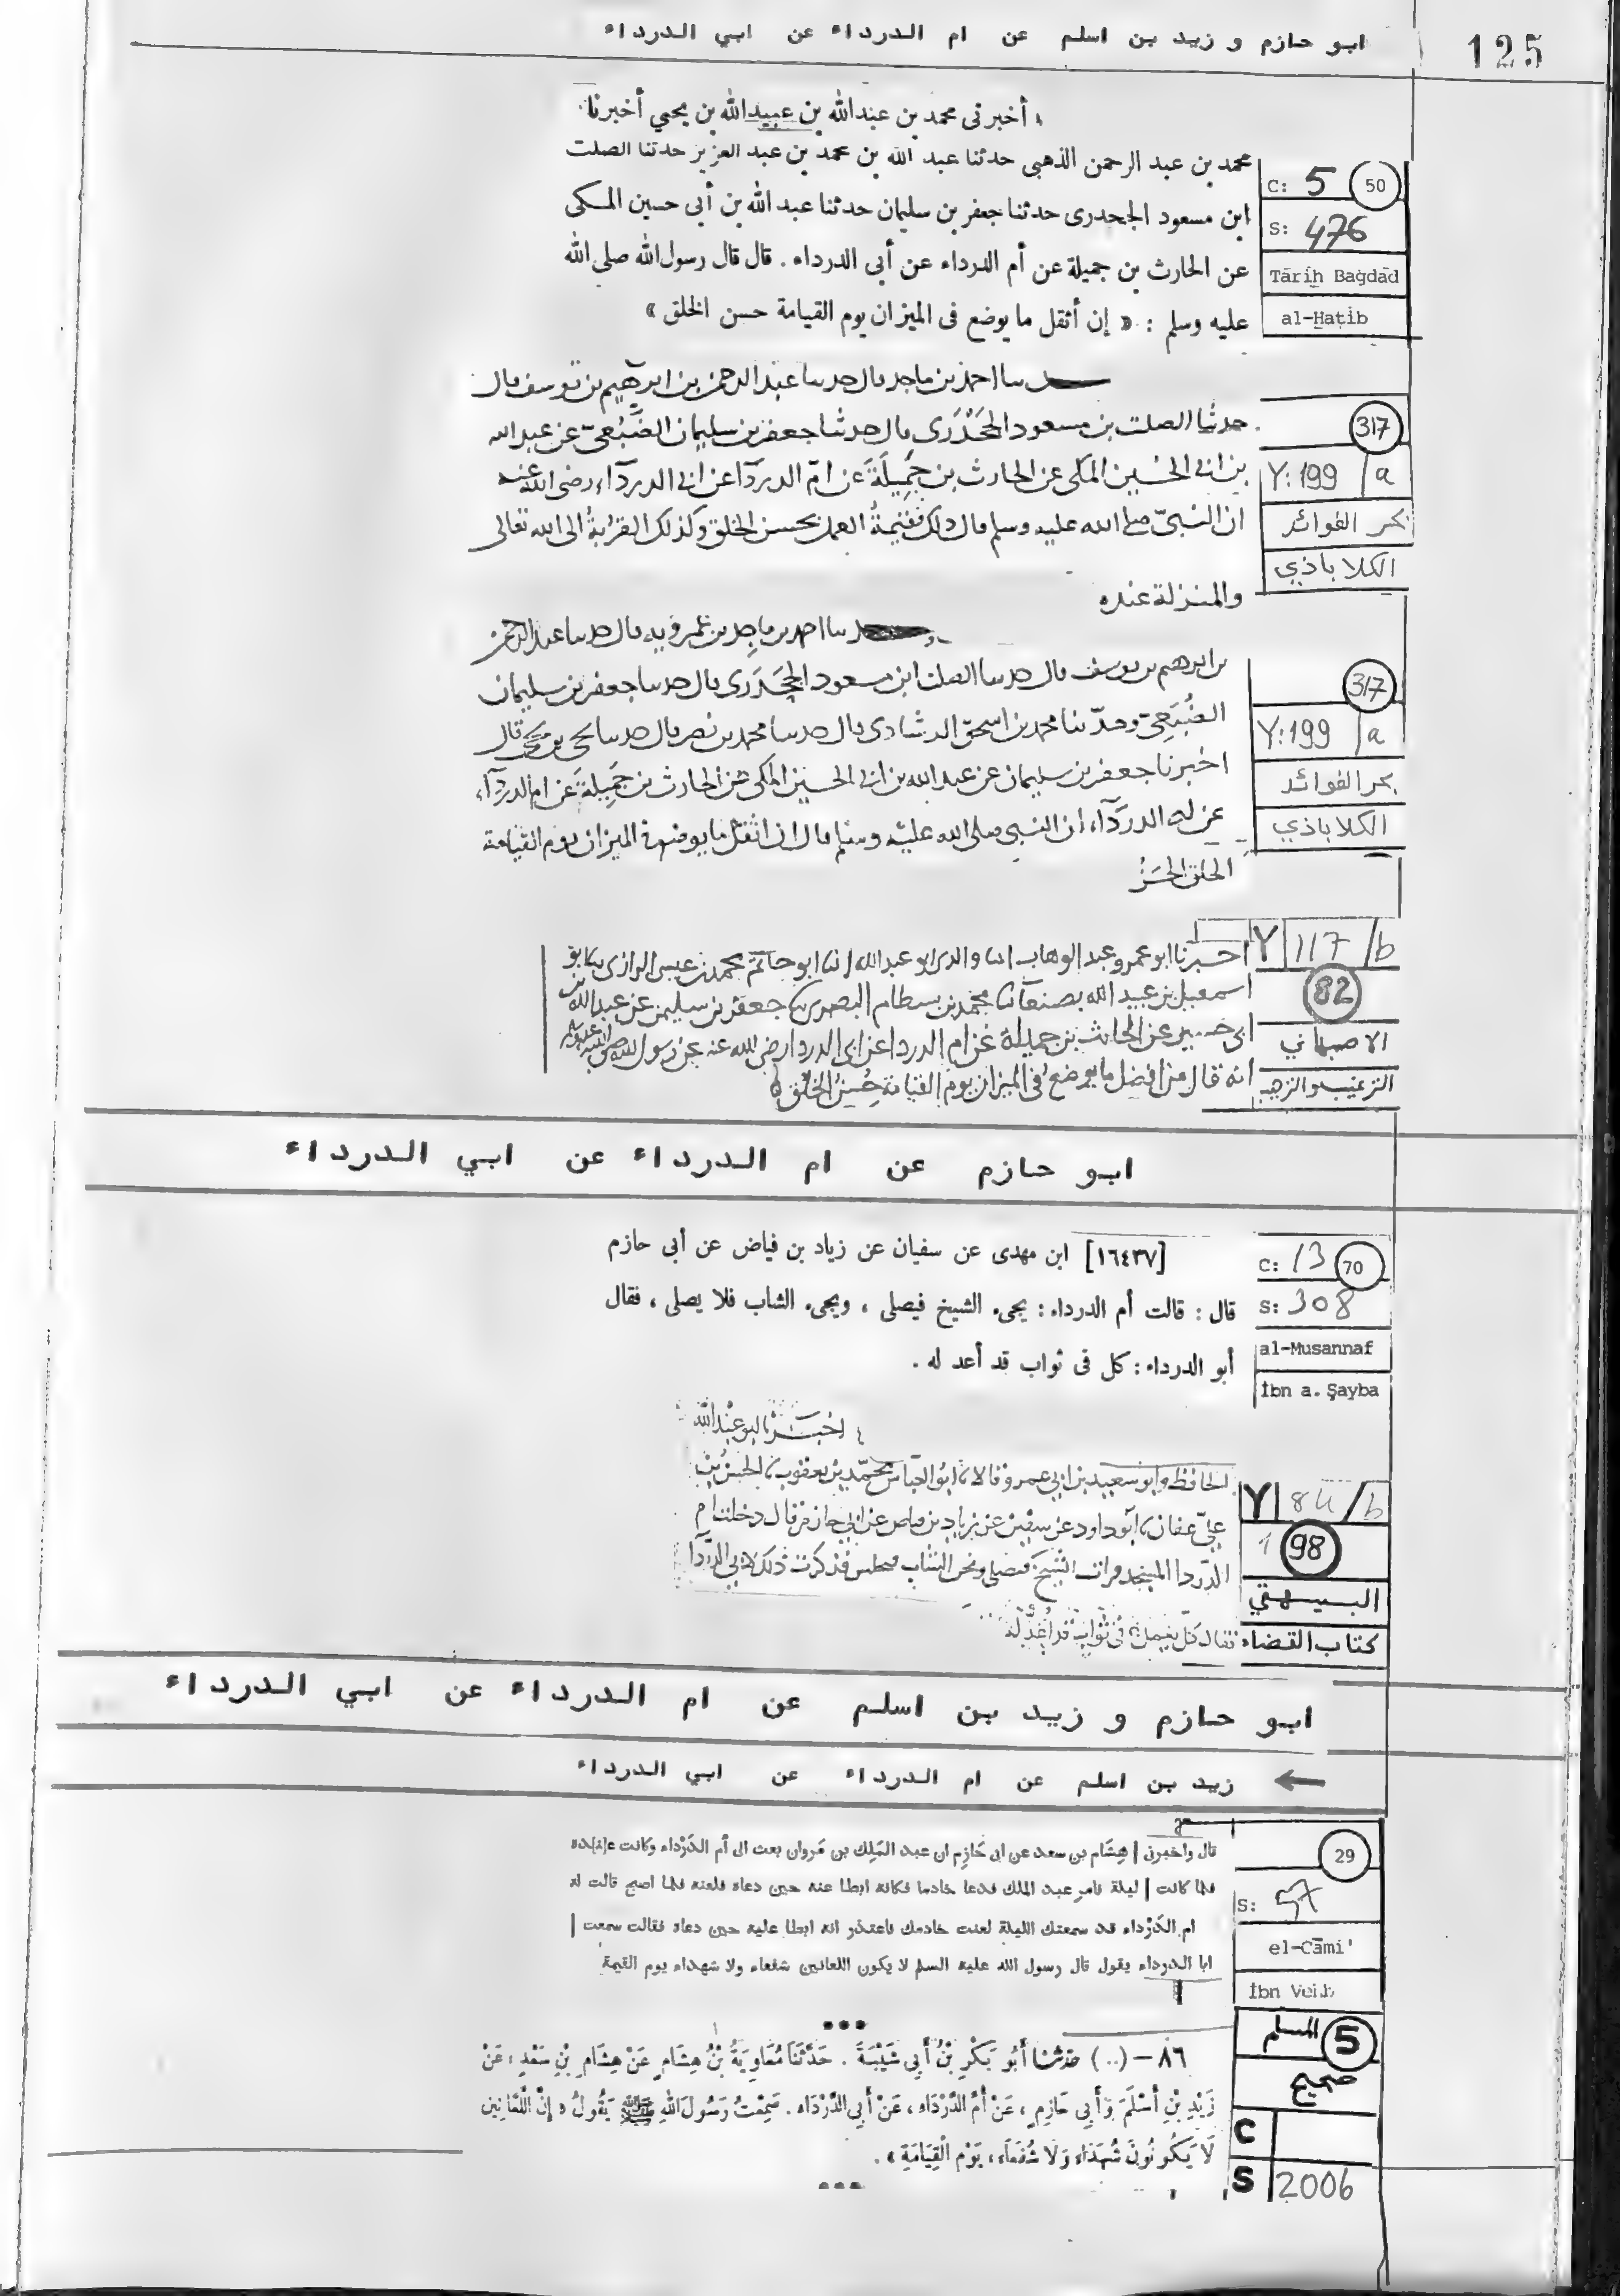 ابو حازم و زيد بن اسلم عن ام الدرداء عن ابي الدرداء
125
أخبرنى محمد بن عبدالله بن عبيدالله بن يحيي أخبرنا
محمد بن عبد الرحمن الذهبى حدثنا عبد الله بن محمد بن عبد العزيز حدثنا الصلت
ابن مسعود الجحدرى حدثنا جعفر بن سليمان حدثنا عبد الله بن أبى حسين المكى
عن الحارث بن جميلة عن أم الدرداء عن أبى الدرداء . قال قال رسول الله صلى الله
عليه وسلم : « إن أثقل ما يوضع فى الميزان يوم القيامة حسن الخلق »
C: 5 50
S: 476
Tārih Baġdād
al-Haṭib
حدثنا احمد بن ماجد قال حدثنا عبد الرحمن بن ابرهيم بن يوسف قال
حدثنا الصلت بن مسعود الجَحْدَرى قال حدثنا جعفر بن سليمان الضُّبَعىّ عن عبد الله
بن ابى الحسين المكى عن الحارث بن جَمِيلَةَ عن امّ الدردآ عن ابى الدردآء رضى الله عنه
ان النبىّ صلى الله عليه وسلم قال ذلك فقيمةُ العمل بحسن الخلق وكذلك القربة الى الله تعالى
والمنزلة عنده
317
Y: 199 / a
بحر الفوائد
الكلاباذي
حدثنا احمد بن ماجد بن عمرويه قال حدثنا عبد الرحمن
بن ابرهيم بن يوسف قال حدثنا الصلت ابن مسعود الجَحْدَرى قال حدثنا جعفر بن سليمان
الضُّبَعىّ وحدّثنا محمد بن اسحق الرشادى قال حدثنا محمد بن نصر قال حدثنا يحيى بن يحيى قال
اخبرنا جعفر بن سليمان عن عبد الله بن ابى الحسين المكى عن الحارث بن جَمِيلةَ عن ام الدردآء
عن ابى الدردآء ان النبى صلى الله عليه وسلم قال ان اثقل ما يوضع فى الميزان يوم القيامة
الخلق الحَسَنُ
317
Y: 199 / a
بحر الفوائد
الكلاباذي
اخبرنا ابو عمرو عبد الوهاب انا والدى ابو عبد الله انا ابو حاتم محمد بن عيسى الرازى
اسمعيل بن عبيد الله بصنعا محمد بن بسطام البصرى جعفر بن سليمن عن عبد الله بن
ابى حسين عن الحارث بن جميلة عن ام الدردا عن ابى الدردا رضى الله عنه عن رسول الله صلى الله عليه
انه قال من افضل ما يوضع فى الميزان يوم القيامة حُسنُ الخلق
Y 117 / b
82
الاصبهاني
الترغيب والترهيب
ابو حازم عن ام الدرداء عن ابي الدرداء
[١٦٤٣٧] ابن مهدى عن سفيان عن زياد بن فياض عن أبى حازم
قال : قالت أم الدرداء : يجىء الشيخ فيصلى ، ويجىء الشاب فلا يصلى ، فقال
أبو الدرداء : كل فى ثواب قد أعد له .
C: 13 70
S: 308
al-Musannaf
İbn a. Şayba
اخبرنا ابو عبد الله
الحافظ وابو سعيد بن ابى عمرو قالا ابو العباس محمد بن يعقوب الحسن بن
على بن عفان ابو داود عن سفين عن زياد بن فياض عن ابى حازم قال دخلت ام
الدردا المسجد فرات الشيخ فيصلى ونحى الشاب فجلس فذكرت ذلك لابى الدردآ
فقال كل يعمل فى ثواب قد اُعدّ له
Y 84 / b
1 98
البيهقي
كتاب القضاء
ابو حازم و زيد بن اسلم عن ام الدرداء عن ابي الدرداء
← زيد بن اسلم عن ام الدرداء عن ابي الدرداء
قال واخبرنى هِشَام بن سعد عن ابى حَازِم ان عبد المَلِك بن مَروان بعث الى أم الدَرْداء وكانت عنده
فلما كانت ليلة قام عبد الملك فدعا خادما فكانه ابطا عنه حين دعاه فلعنه فلما اصبح قالت له
ام الدَرْداء قد سمعتك الليلة لعنت خادمك فاعتذر انه ابطا عليه حين دعاه فقالت سمعت
ابا الدرداء يقول قال رسول الله عليه السلم لا يكون اللعانين شفعاء ولا شهداء يوم القيمة
29
S: 57
el-Cāmi'
İbn Vehb
٨٦ – (..) حدثنا أَبُو بَكْرِ بْنُ أَبِي شَيْبَةَ . حَدَّثَنَا مُعَاوِيَةُ بْنُ هِشَامٍ عَنْ هِشَامِ بْنِ سَعْدٍ ، عَنْ
زَيْدِ بْنِ أَسْلَمَ وَأَبِي حَازِمٍ ، عَنْ أُمِّ الدَّرْدَاءِ ، عَنْ أَبِي الدَّرْدَاءِ . سَمِعْتُ رَسُولَ اللهِ ﷺ يَقُولُ « إِنَّ اللَّعَّانِينَ
لَا يَكُونُونَ شُهَدَاءَ وَلَا شُفَعَاءَ ، يَوْمَ الْقِيَامَةِ » .
المسلم 5
صحيح
C
S 2006